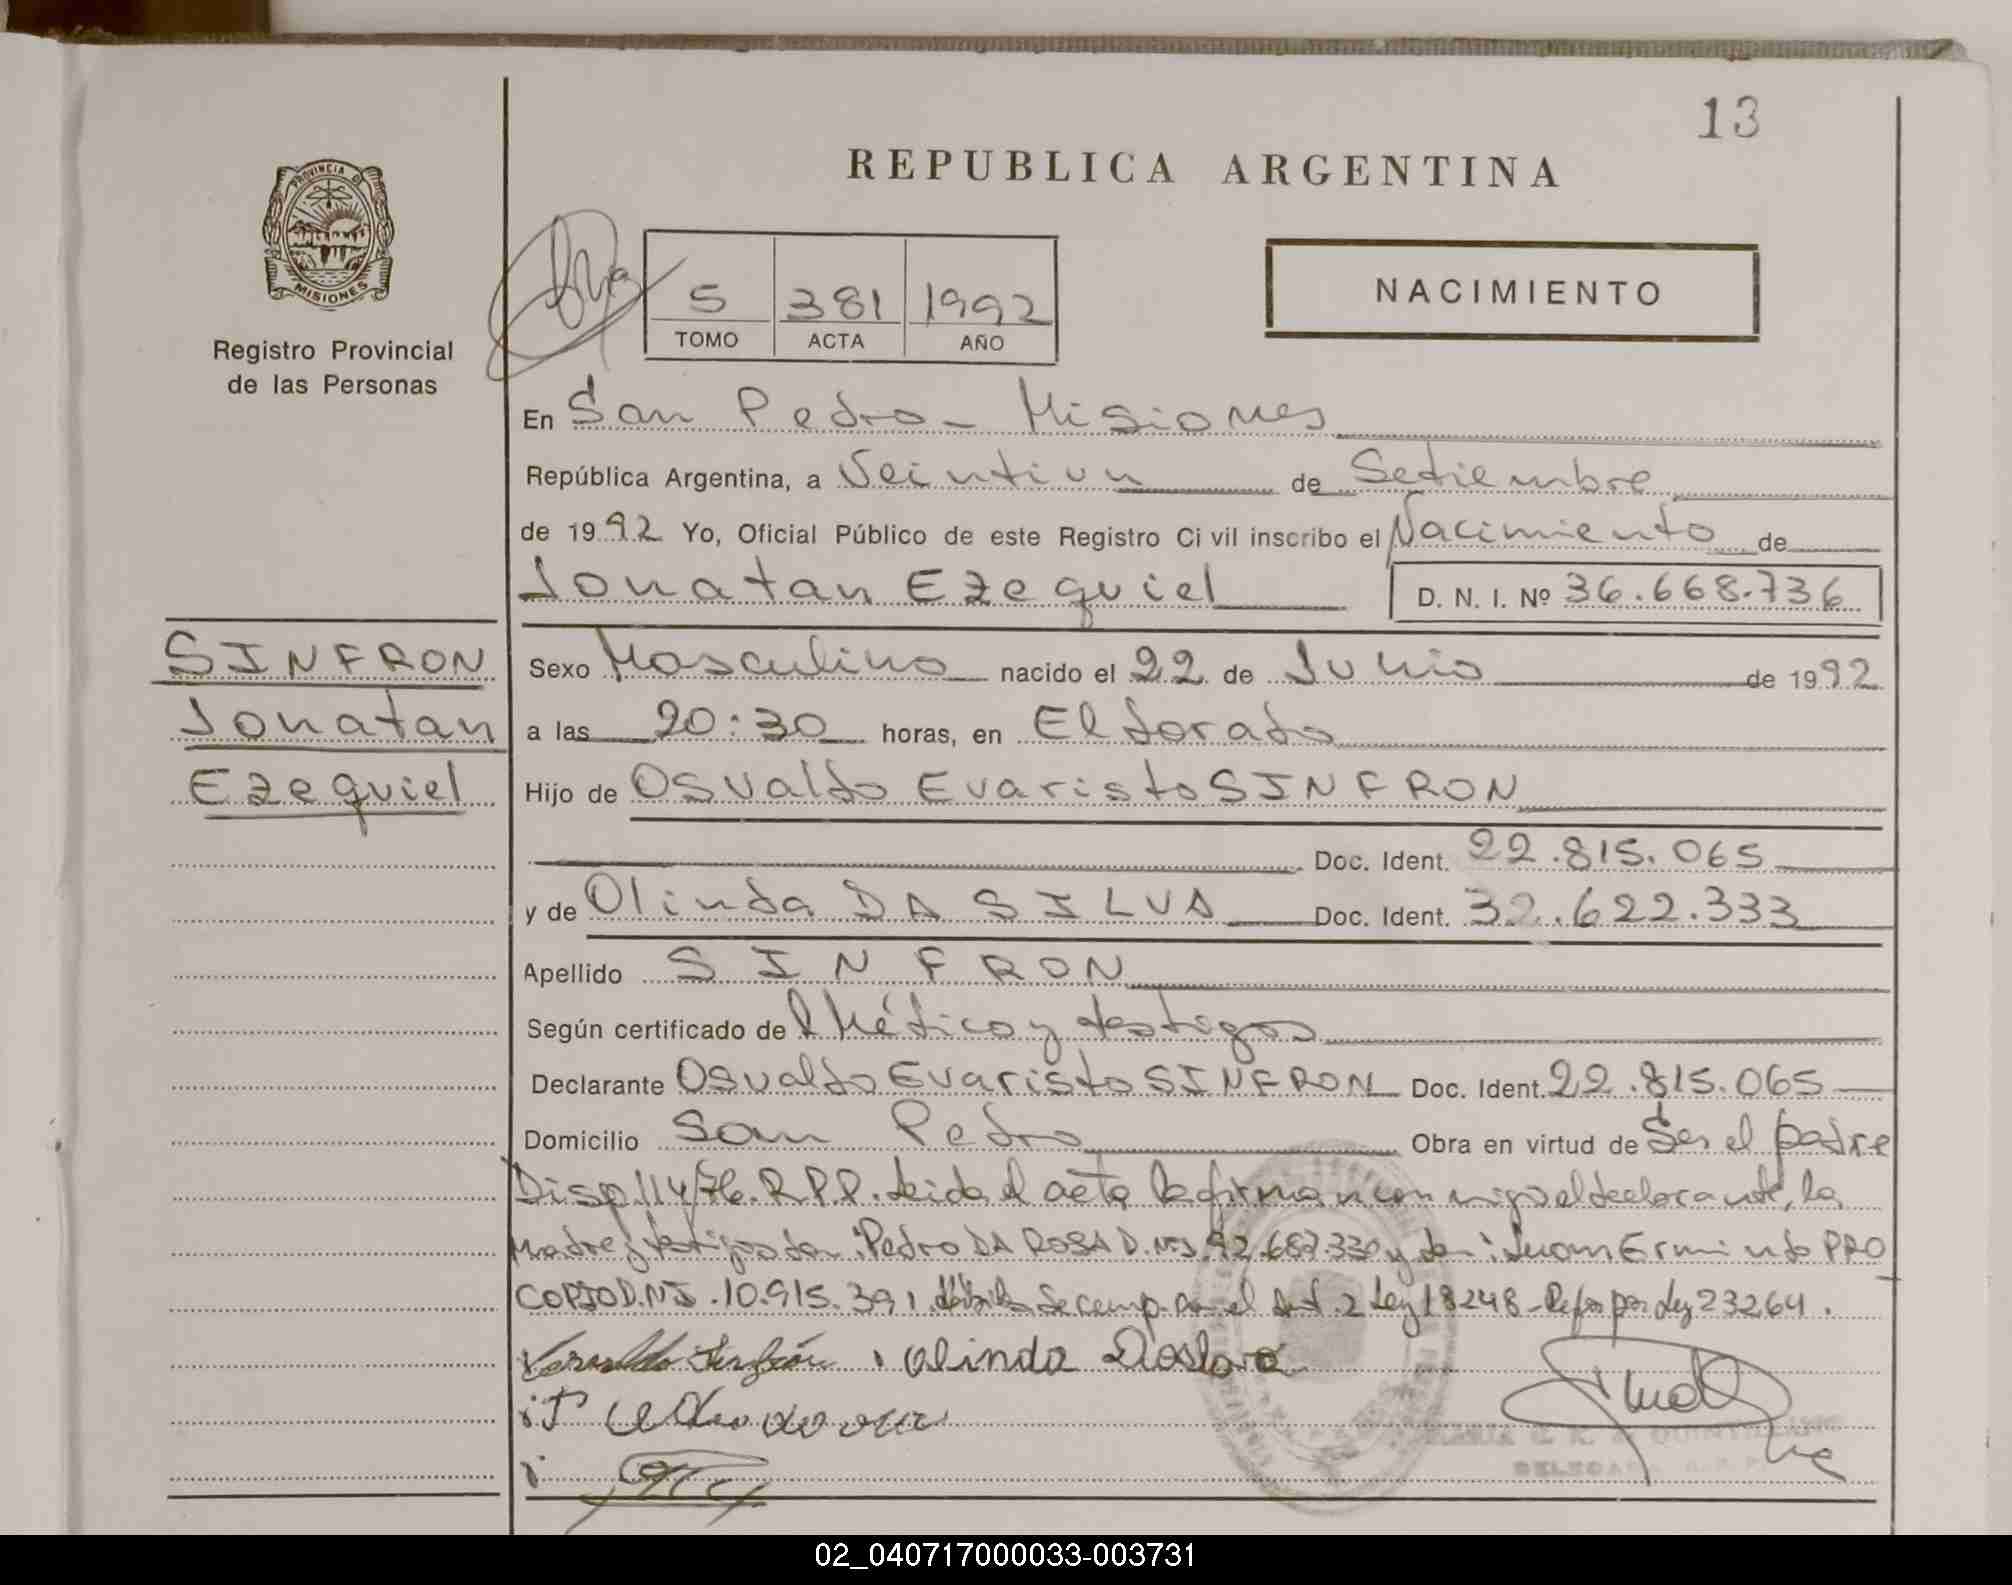 13
REPUBLICA ARGENTINA
PROVINCIA D
MISIONES
Registro Provincial
de las Personas
5 381 1992
TOMO ACTA AÑO
NACIMIENTO
En San Pedro - Misiones
República Argentina, a Veintiun de Setiembre
de 1992 Yo, Oficial Público de este Registro Civil inscribo el Nacimiento de
Jonatan Ezequiel D. N. I. Nº 36.668.736
SINFRON
Jonatan
Ezequiel
Sexo Masculino nacido el 22 de Junio de 1992
a las 20:30 horas, en Eldorado
Hijo de Osvaldo Evaristo SINFRON
Doc. Ident. 22.815.065
y de Olinda DA SILVA Doc. Ident. 32.622.333
Apellido SINFRON
Según certificado de Médico y testigos
Declarante Osvaldo Evaristo SINFRON Doc. Ident. 22.815.065
Domicilio San Pedro Obra en virtud de Ser el padre
Disp. 114/76. R.P.P. Leida el acta la firman conmigo el declarante, la
Madre y testigos don: Pedro DA ROSA D.N.I. 92.687.330 y don: Juan Ermindo PRO
COPIO D.N.I. 10.915.391. Se comp. con el Art. 2 Ley 18248 - Refor por Ley 23264.
Olinda Daslava
MARIA QUINTELANA
DELEGADA R.P.P.
02_040717000033-003731